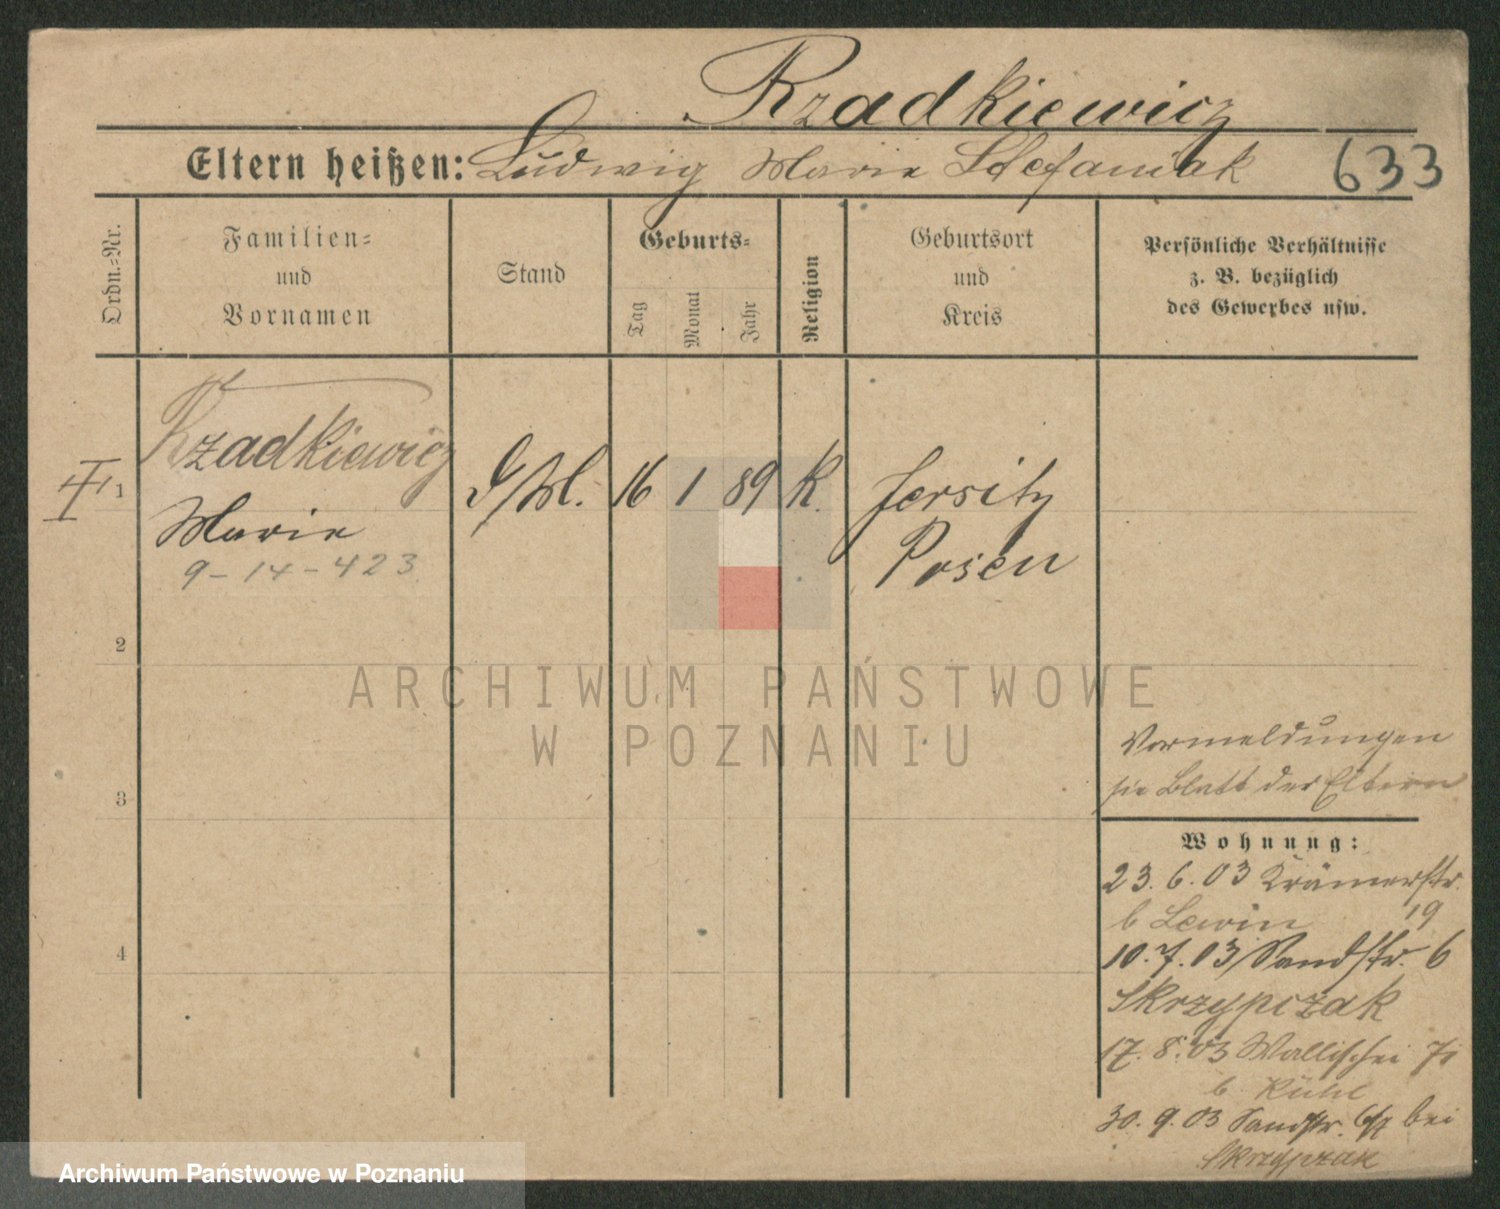 Rzadkiewicz
Eltern heißen: Ludwig Marie Stefaniak
633
Ordn.-Nr.
Familien-
und
Vornamen
Stand
Geburts-
Tag
Monat
Jahr
Religion
Geburtsort
und
Kreis
Persönliche Verhältnisse
z. B. bezüglich
des Gewerbes usw.
Rzadkiewicz
II 1
Marie
16 1 89 K.
Jersitz
Posen
9-14-423
2
3
4
ARCHIWUM PAŃSTWOWE
W POZNANIU
Vormeldungen
sie Blatt der Eltern
Wohnung:
23. 6. 03 Krämerstr.
b Lewin 19
10. 7. 03 Sandstr. 6
Skrzypczak
17. 8. 03 Wallischei
b. Kühl
30. 9. 03 Sandstr. bei
Skrzypczak
Archiwum Państwowe w Poznaniu